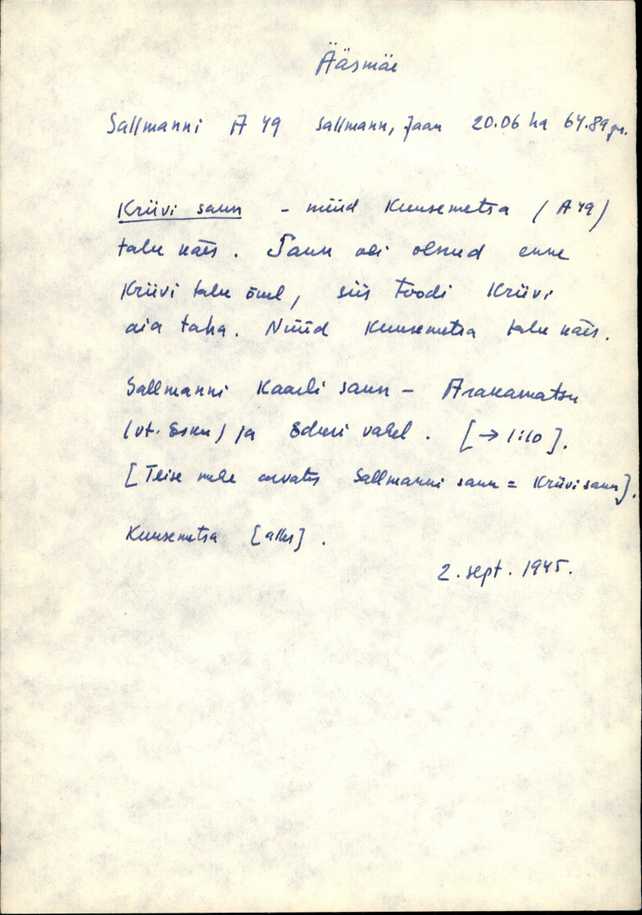 Ääsmäe
Sallmanni A 49 Sallmann, Jaan 20.06 ha 64.89 gr.
Kriivi saun - nüüd Kuusemetsa (A 49)
talu käes. Saun oli olnud enne
Kriivi talu õuel, siis toodi Kriivi
aia taha. Nüüd Kuusemetsa talu käes.
Sallmanni Kaarli saun - Arakamatsu
(vt. Esku) ja Eduri vahel. [→ 1:10].
[Teise mehe arvates Sallmanni saun = Kriivi saun].
Kuusemetsa [alles].
2. sept. 1945.